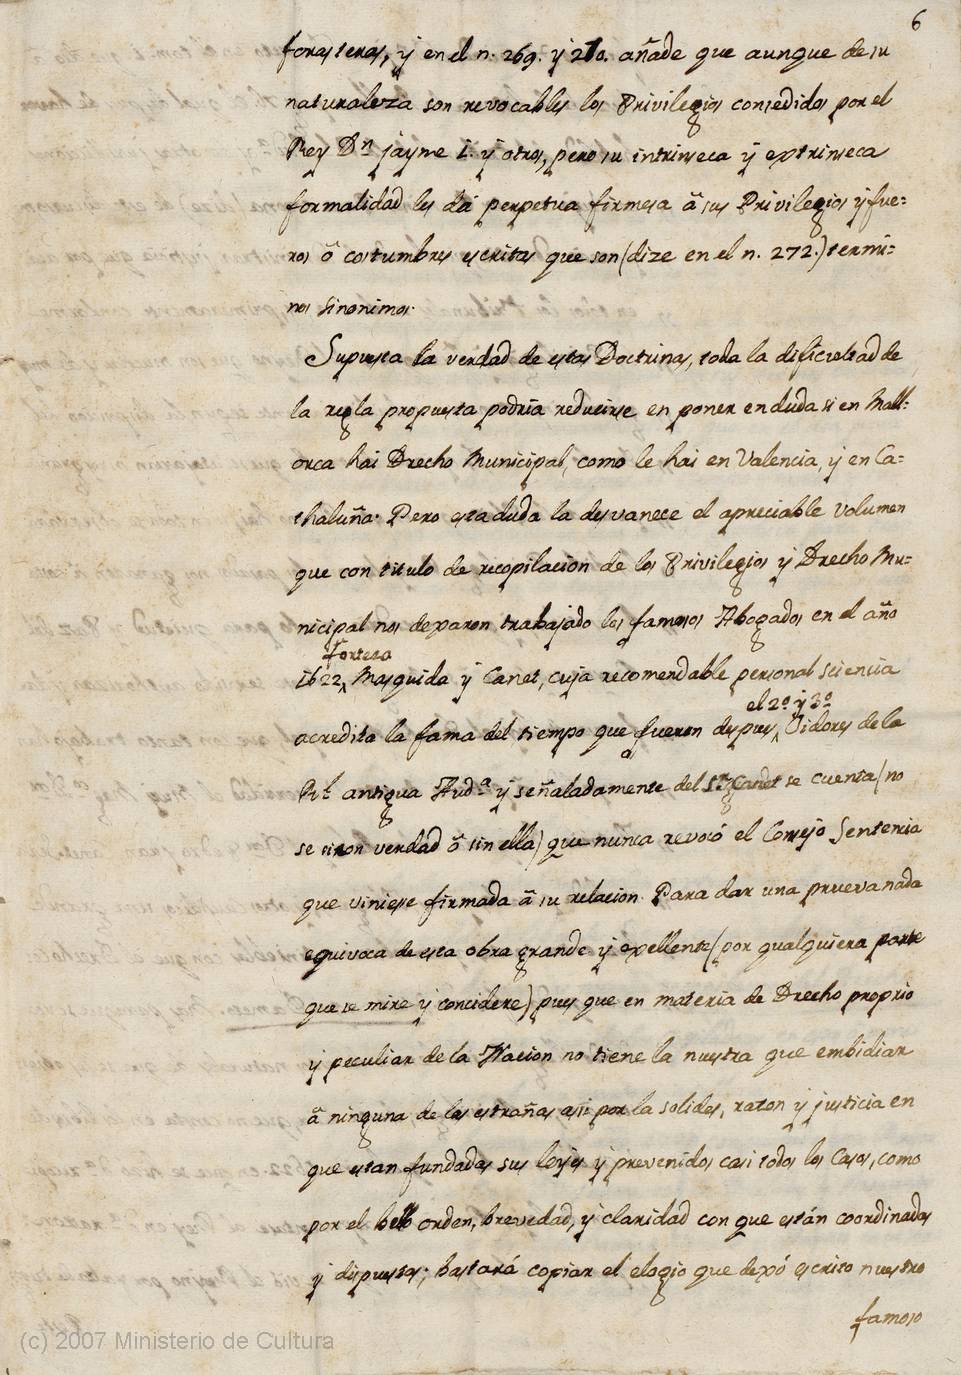 6
forasteras, y en el n. 269. y 270. añade que aunque de su
naturaleza son revocables los Privilegios consedidos por el
Rey Dn jayme I. y otros, pero su intrinseca y extrinseca
formalidad les dá perpetua firmesa â sus Privilegios y fue=
ros ô costumbres escritas que son (dize en el n. 272.) termi=
nos sinonimos.
Supuesta la verdad de estas Doctrinas, toda la dificultad de
la regla propuesta podria reducirse en poner en duda si en Mall=
orca hai Drecho Municipal, como le hai en Valencia, y en Ca=
thaluña. Pero esta duda la desvanece el apreciable volumen
que con titulo de recopilacion de los Privilegios y Drecho Mu=
nicipal nos dexaron trabajado los famosos Abogados en el año
Forteza
1622, Masquida y Canet, cuja recomendable personal sciencia
el 2º y 3º
acredita la fama del tiempo que fueron despues Oidores de la
Rl antigua Auda y señaladamente del Sr Canet se cuenta (no
se si con verdad ô sin ella) que nunca revocó el Consejo Sentencia
que viniese firmada â su relacion. Para dar una prueva nada
equivoca de esta obra grande y exellente (por qualquiera parte
que se mire y concidere) pues que en materia de Drecho proprio
y peculiar de la Nacion no tiene la nuestra que embidiar
â ninguna de las estrañas asi por la solides, razon y justicia en
que estan fundadas sus leyes y prevenidos casi todos los Casos, como
por el bello orden, brevedad, y claridad con que están coordinadas
y dispuestas; bastará copiar el elogio que dexó escrito nuestro
famoso
(c) 2007 Ministerio de Cultura